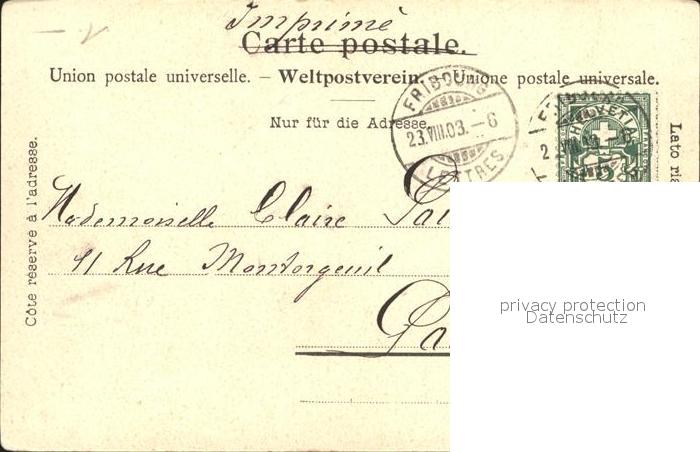 Imprimé
Carte postale.
Union postale universelle. – Weltpostverein. – Unione postale universale.
Nur für die Adresse.
FRIBOURG
23.VIII.03.–6
LETTRES
HELVETIA
Côte réservé à l'adresse.
Lato
Mademoiselle Claire
41 Rue Montorgeuil
privacy protection
Datenschutz